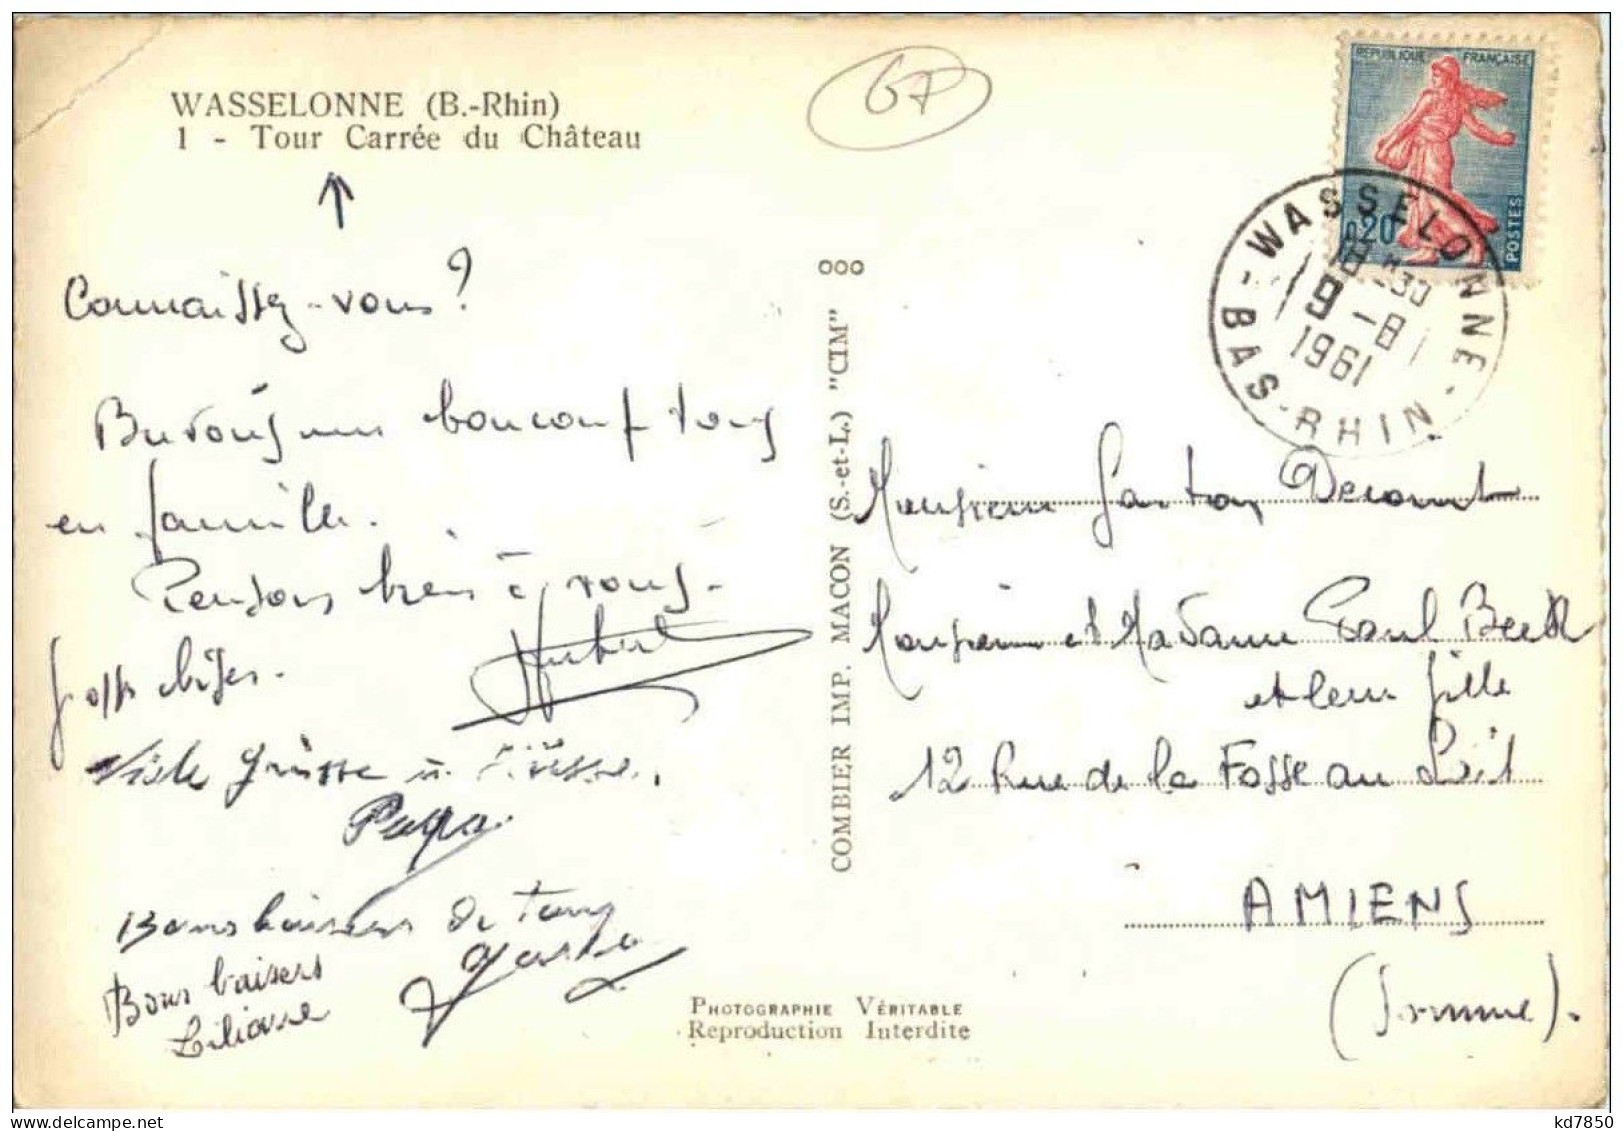 WASSELONNE (B.-Rhin)
1 - Tour Carrée du Château
67
REPUBLIQUE FRANÇAISE
0,20
POSTES
WASSELONNE
9 -8
1961
BAS-RHIN
Connaissez-vous ?
beaucoup tous
en famille.
Pensons bien à vous.
Hubert
Gross bises.
Viele Grüsse u. Küsse.
Papa
Bons baisers de tous
Bons baisers
Liliane
COMBIER IMP. MACON (S.-et-L.) "CIM"
PHOTOGRAPHIE VÉRITABLE
Reproduction Interdite
Monsieur Gaston Decourt
Monsieur et Madame Paul
et leur fille
12 Rue de la Fosse au Lait
AMIENS
(Somme).
kd7850